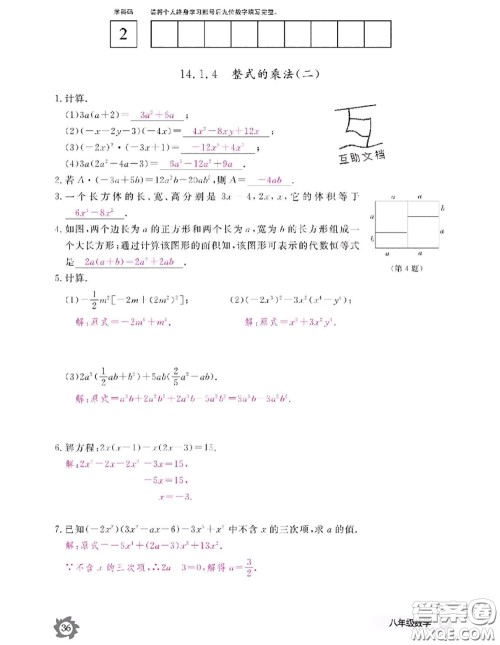 学科码 请将个人终身学习账号后九位数字填写完整。
2
14.1.4 整式的乘法(二)
1.计算.
(1)3a(a+2)= 3a²+6a ;
(2)(-x-2y-3)(-4x)= 4x²-8xy+12x ;
(3)(-2x)²·(-3x+1)= -12x³+4x² ;
(4)3a(2a²-4a-3)= 6a³-12a²+9a .
2.若A·(-3a+5b)=12a²b-20ab²,则A= -4ab .
3.一个长方体的长、宽、高分别是3x-4,2x,x,它的体积等于
6x³-8x² .
4.如图,两个边长为a的正方形和两个长为a、宽为b的长方形组成一
个大长方形;通过计算该图形的面积知,该图形可表示的代数恒等式
是 2a(a+b)=2a²+2ab .
a
b
a
b
a
(第4题)
互助文档
5.计算.
(1)-1/2m²[-2m+(2m²)²]; (2)(-2x³)²-3x²(x⁴-y²);
解:原式=-2m⁶+m³. 解:原式=x⁶+3x²y².
(3)2a²(1/2ab+b²)+5ab(2/5a²-ab).
解:原式=a³b+2a²b²+2a³b-5a²b²=3a³b-3a²b².
6.解方程:2x(x-1)-x(2x-3)=15.
解:2x²-2x-2x²
-3x=15,
-5x=15,
x=-3.
7.已知(-2x²)(3x²-ax-6)-3x³+x²中不含x的三次项,求a的值.
解:原式=-5x⁴+(2a-3)x³+13x².
∵不含x的三次项,∴2a 3=0.解得a=3/2.
36
八年级数学